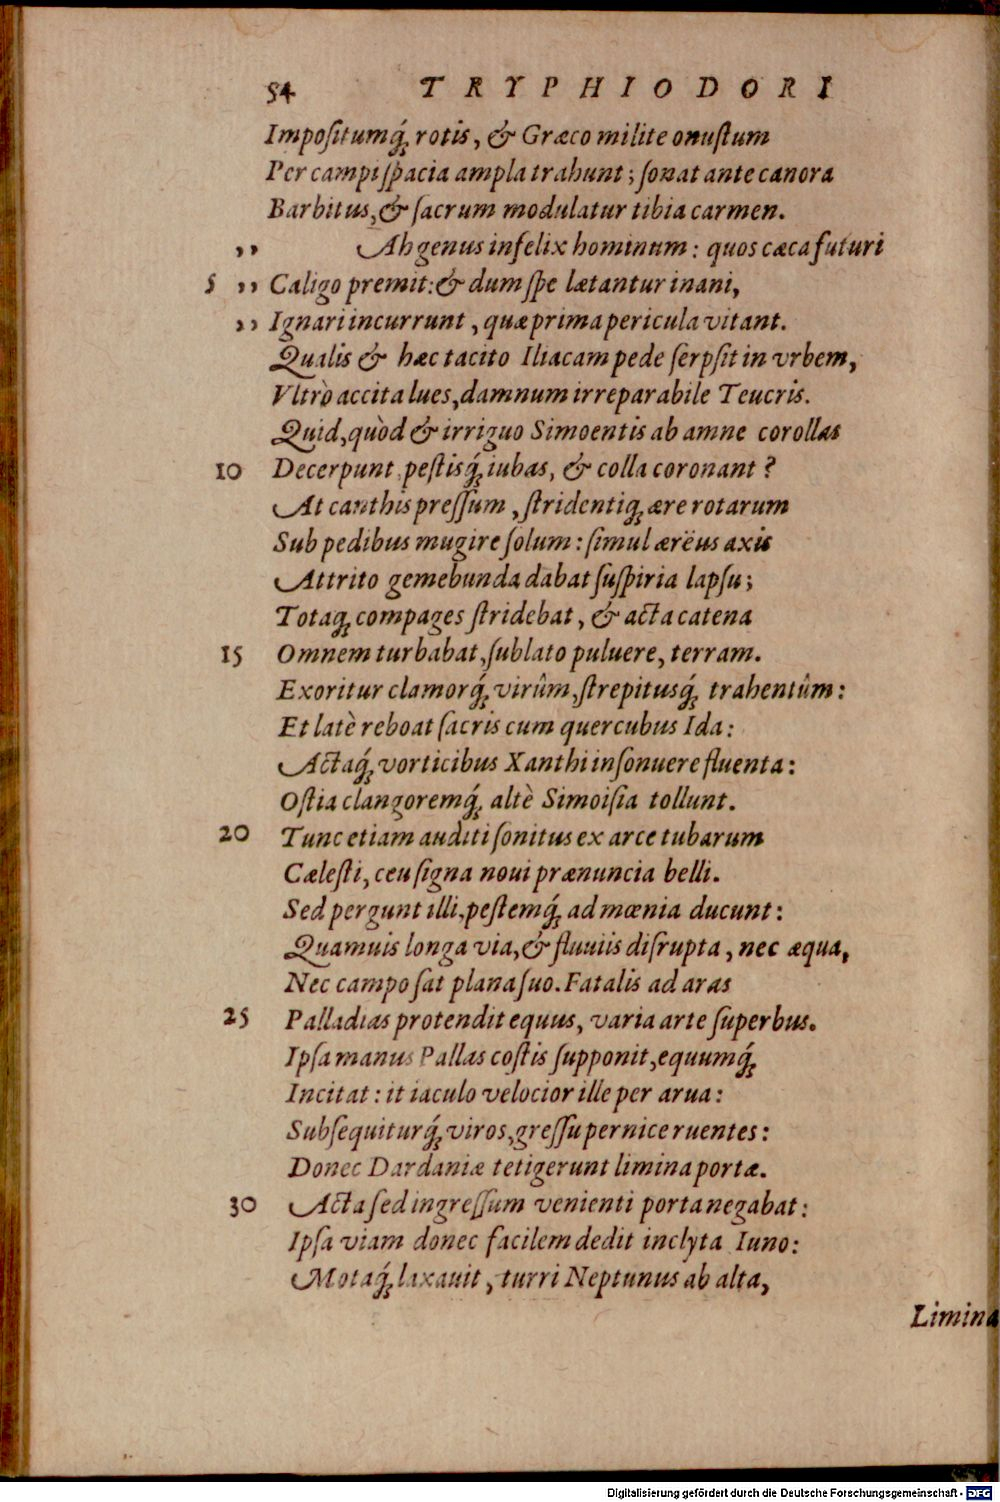 54 TRYPHIODORI
Impositumq́; rotis, & Græco milite onustum
Per campi spacia ampla trahunt; sonat ante canora
Barbitus, & sacrum modulatur tibia carmen.
,, Ah genus infelix hominum: quos cæca futuri
5 ,, Caligo premit: & dum spe lætantur inani,
,, Ignari incurrunt, quæ prima pericula vitant.
Qualis & hæc tacito Iliacam pede serpsit in vrbem,
Vltrò accita lues, damnum irreparabile Teucris.
Quid, quòd & irriguo Simoentis ab amne corollas
10 Decerpunt, pestisq́; iubas, & colla coronant?
At canthis pressum, stridentiq; ære rotarum
Sub pedibus mugire solum: simul ærëus axis
Attrito gemebunda dabat suspiria lapsu;
Totaq; compages stridebat, & acta catena
15 Omnem turbabat, sublato puluere, terram.
Exoritur clamorq́; virûm, strepitusq́; trahentûm:
Et latè reboat sacris cum quercubus Ida:
Actaq́; vorticibus Xanthi insonuere fluenta:
Ostia clangoremq́; altè Simoisia tollunt.
20 Tunc etiam auditi sonitus ex arce tubarum
Cælesti, ceu signa noui prænuncia belli.
Sed pergunt illi, pestemq́; ad mœnia ducunt:
Quamuis longa via, & fluuiis disrupta, nec æqua,
Nec campo sat plana suo. Fatalis ad aras
25 Palladias protendit equus, varia arte superbus.
Ipsa manus Pallas costis supponit, equumq́;
Incitat: it iaculo velocior ille per arua:
Subsequiturq́; viros, gressu pernice ruentes:
Donec Dardaniæ tetigerunt limina portæ.
30 Acta sed ingressum venienti porta negabat:
Ipsa viam donec facilem dedit inclyta Iuno:
Motaq́; laxauit, turri Neptunus ab alta,
Limina
Digitalisierung gefördert durch die Deutsche Forschungsgemeinschaft - DFG